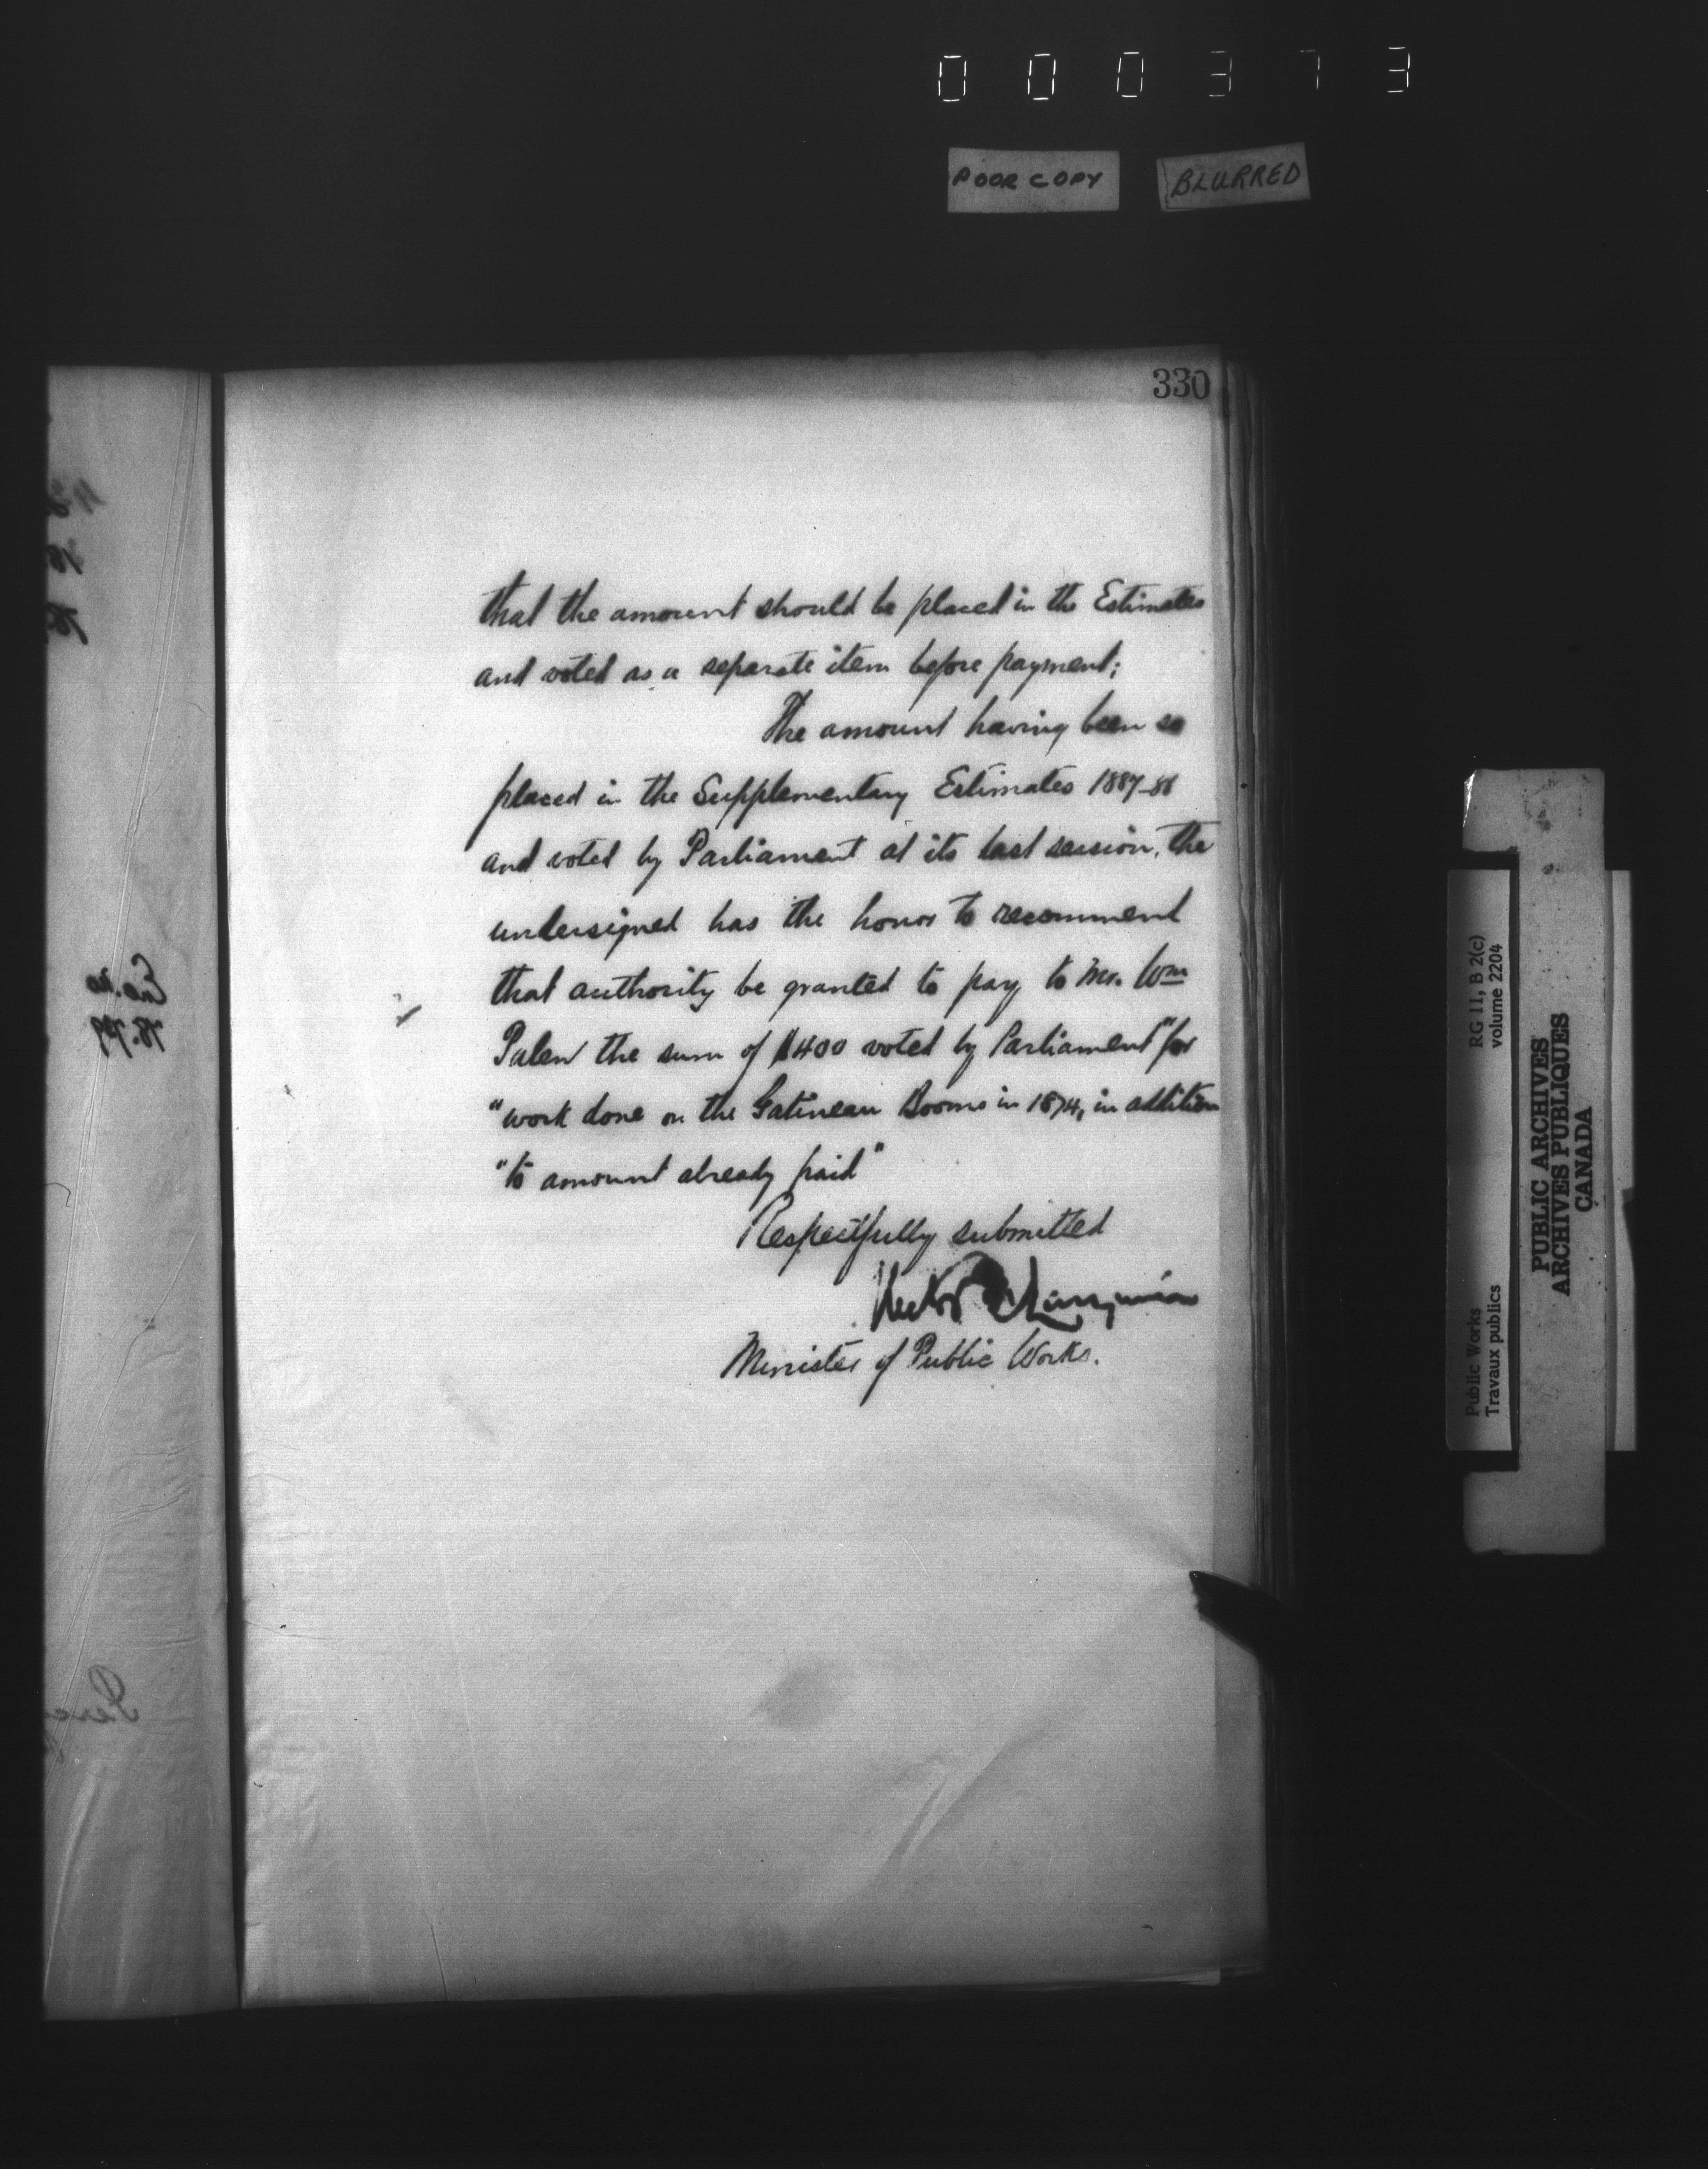 000373
POOR COPY
BLURRED
330
that the amount should be placed in the Estimates
and voted as a separate item before payment;
The amount having been so
placed in the Supplementary Estimates 1887-88
and voted by Parliament at its last session, the
undersigned has the honor to recommend
that authority be granted to pay to Mr. Wm
Palen the sum of $400 voted by Parliament "for
"work done on the Gatineau Booms in 1874, in addition
"to amount already paid"
Respectfully submitted
Hector L Langevin
Minister of Public Works.
RG 11, B 2(c)
volume 2204
Public Works
Travaux publics
PUBLIC ARCHIVES
ARCHIVES PUBLIQUES
CANADA